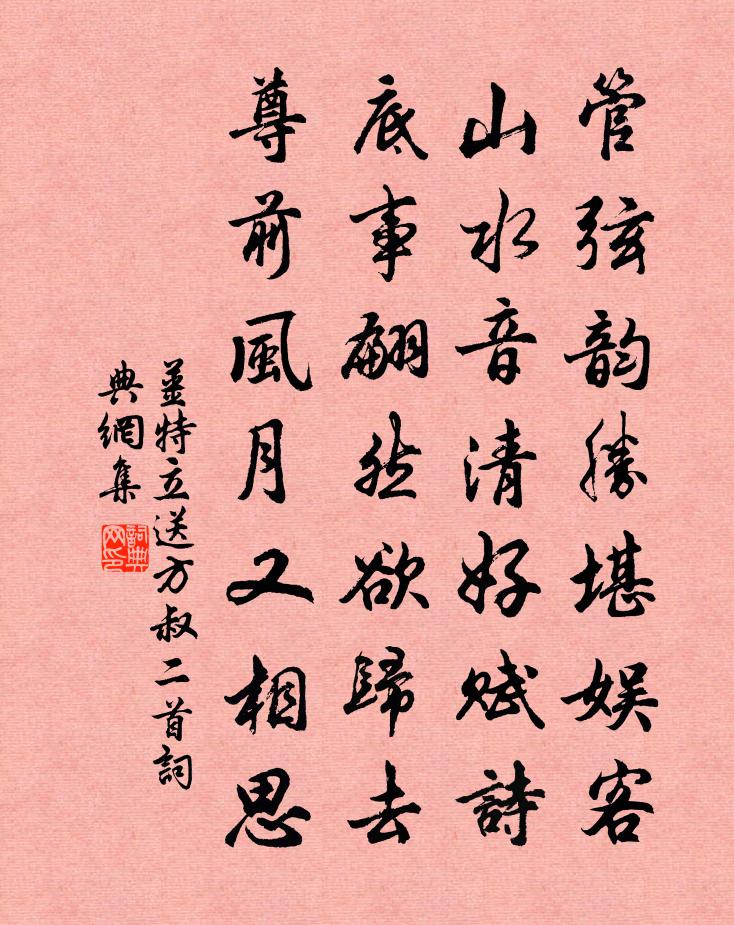 管弦韵勝堪娱客
山水音清好赋詩
底事翩然欲歸去
尊前風月又相思
姜特立送方叔二首詞
典網集
詞典网印